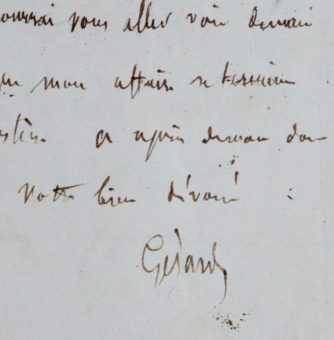 pourrai vous aller voir demain
que mon affaire se termine
à après demain donc
votre bien dévoué
Gérard